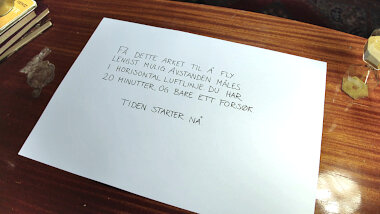 FÅ DETTE ARKET TIL Å FLY
LENGST MULIG AVSTANDEN MÅLES
I HORISONTAL LUFTLINJE. DU HAR
20 MINUTTER OG BARE ETT FORSØK
TIDEN STARTER NÅ